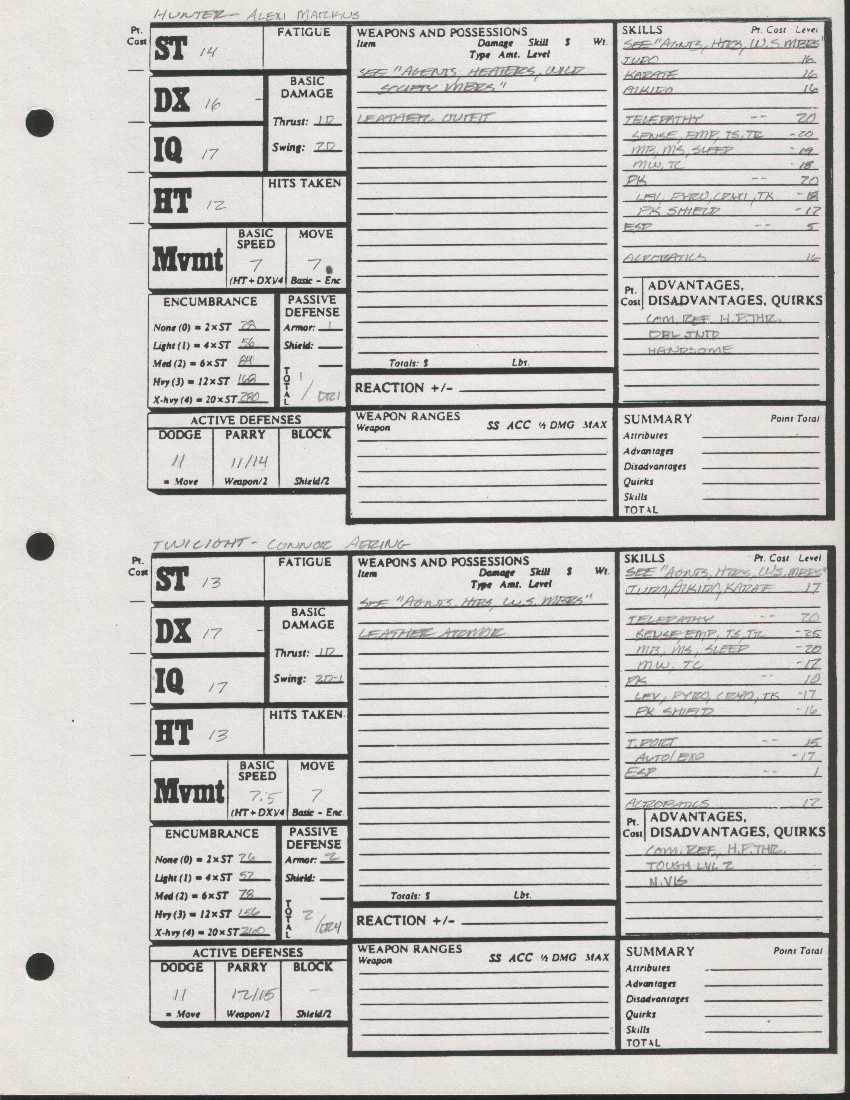 HUNTER - ALEXI MARCHUS
Pt. Cost
ST 14
FATIGUE
DX 16
BASIC DAMAGE
Thrust: 1D
Swing: 2D
IQ 17
HT 12
HITS TAKEN
Mvmt
BASIC SPEED
7
(HT + DX)/4
MOVE
7
Basic - Enc
ENCUMBRANCE
None (0) = 2 x ST 28
Light (1) = 4 x ST 56
Med (2) = 6 x ST 84
Hvy (3) = 12 x ST 168
X-hvy (4) = 20 x ST 280
PASSIVE DEFENSE
Armor: 1
Shield:
TOTAL 1/DR1
ACTIVE DEFENSES
DODGE PARRY BLOCK
11 11/14
= Move Weapon/2 Shield/2
WEAPONS AND POSSESSIONS
Item Damage Skill $ Wt.
Type Amt. Level
SEE "AGENTS, HEATERS, WILD
SOCIETY MBRS"
LEATHER OUTFIT
Totals: $ Lbs.
REACTION +/-
WEAPON RANGES
Weapon SS ACC ½ DMG MAX
SKILLS Pt. Cost Level
SEE "AGNTS, HTRS, W.S. MBRS"
JUDO 16
KARATE 16
AIKIDO 16
TELEPATHY -- 20
SENSE, EMP, TS, TR -20
MR, MS, SLEEP -19
MW, TC -18
PK 20
LEV, PYRO, CRYO, TK -18
PK SHIELD -17
ESP -- 5
ACROBATICS 16
Pt. Cost
ADVANTAGES, DISADVANTAGES, QUIRKS
COM. REF, H.P. THR.
DBL JNTD
HANDSOME
SUMMARY Point Total
Attributes
Advantages
Disadvantages
Quirks
Skills
TOTAL
TWILIGHT - CONNOR AERING
Pt. Cost
ST 13
FATIGUE
DX 17
BASIC DAMAGE
Thrust: 1D
Swing: 2D-1
IQ 17
HT 13
HITS TAKEN
Mvmt
BASIC SPEED
7.5
(HT + DX)/4
MOVE
7
Basic - Enc
ENCUMBRANCE
None (0) = 2 x ST 26
Light (1) = 4 x ST 52
Med (2) = 6 x ST 78
Hvy (3) = 12 x ST 156
X-hvy (4) = 20 x ST 260
PASSIVE DEFENSE
Armor: 2
Shield:
TOTAL 2/DR4
ACTIVE DEFENSES
DODGE PARRY BLOCK
11 12/15 -
= Move Weapon/2 Shield/2
WEAPONS AND POSSESSIONS
Item Damage Skill $ Wt.
Type Amt. Level
SEE "AGNTS, HTRS, W.S. MBRS"
LEATHER ARMOR
Totals: $ Lbs.
REACTION +/-
WEAPON RANGES
Weapon SS ACC ½ DMG MAX
SKILLS Pt. Cost Level
SEE "AGNTS, HTRS, W.S. MBRS"
JUDO, AIKIDO, KARATE 17
TELEPATHY -- 20
SENSE EMP, TS, TR -25
MR, MS, SLEEP -20
MW, TC -17
PK -- 10
LEV, PYRO, CRYO, TK -17
PK SHIELD -16
T. PORT -- 15
AUTO/EXO -17
ESP -- 1
ACROBATICS 17
Pt. Cost
ADVANTAGES, DISADVANTAGES, QUIRKS
COM. REF, H.P. THR.
TOUGH LVL 2
N.VIS
SUMMARY Point Total
Attributes
Advantages
Disadvantages
Quirks
Skills
TOTAL